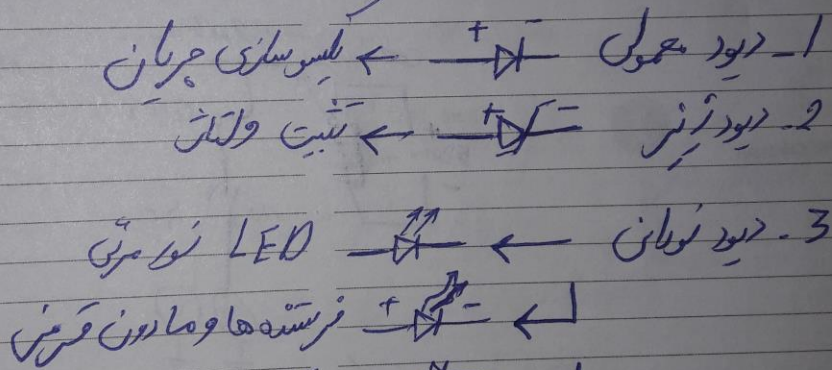 1- دیود معمولی + - ← یکسوسازی جریان
2- دیود زنر + - ← تثبیت ولتاژ
3- دیود نورانی ← LED نور مرئی
+ - فرستنده ها و مادون قرمز